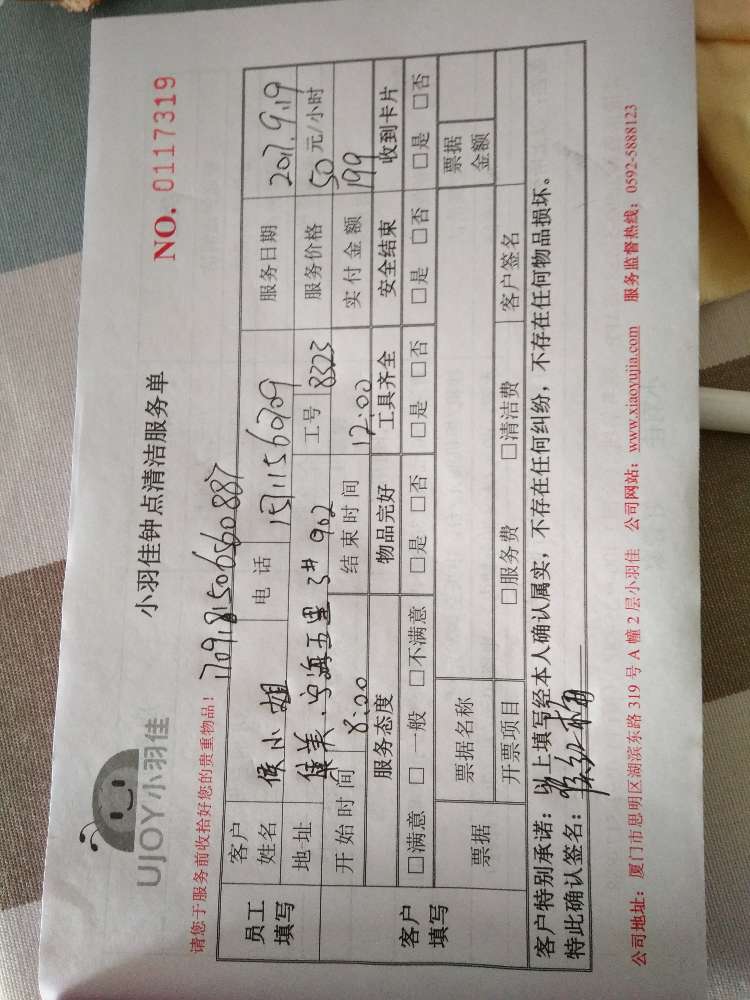 UJOY小羽佳
小羽佳钟点清洁服务单
NO. 0117319
请您于服务前收拾好您的贵重物品！
员工填写
客户姓名 侯小姐 电话 服务日期 2017.9.19
地址 集美·宁海五里 3# 902 工号 8323 服务价格 50元/小时
开始时间 8:00 结束时间 12:00 实付金额 199
客户填写
服务态度 物品完好 工具齐全 安全结束 收到卡片
□满意 □一般 □不满意 □是 □否 □是 □否 □是 □否 □是 □否
票据 票据名称 票据金额
开票项目 □服务费 □清洁费 客户签名
客户特别承诺：以上填写经本人确认属实，不存在任何纠纷，不存在任何物品损坏。
特此确认签名：
公司地址：厦门市思明区湖滨东路 319 号 A 幢 2 层小羽佳 公司网站：www.xiaoyujia.com 服务监督热线：0592-5888123